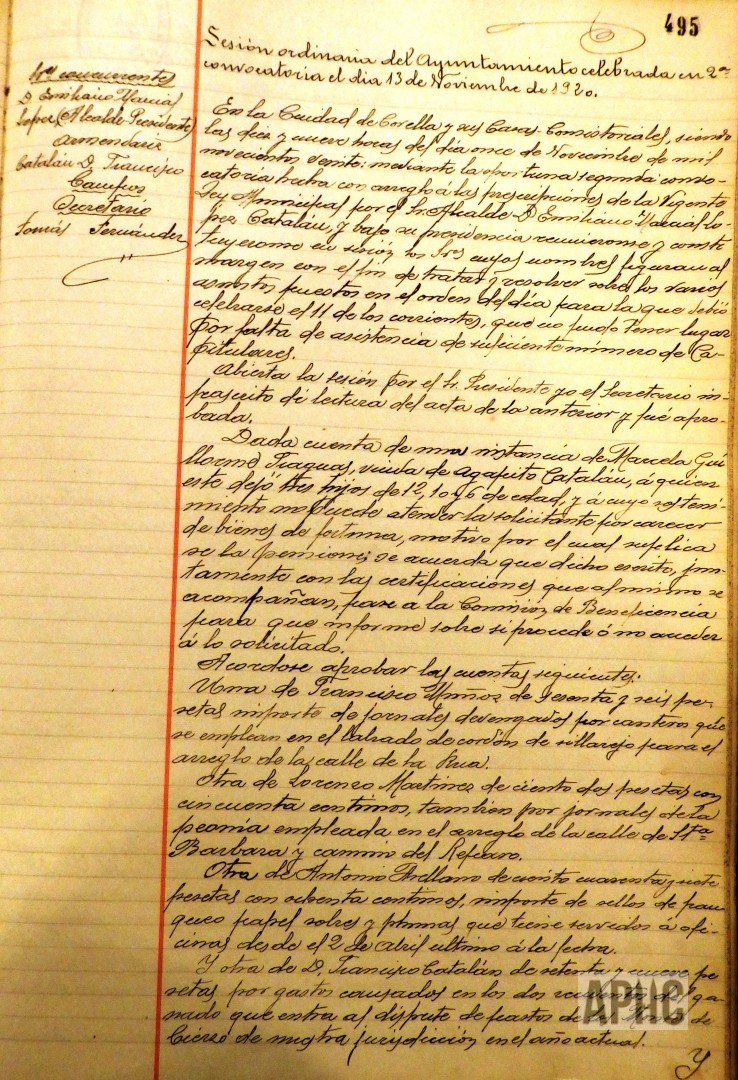 495
Sesión ordinaria del Ayuntamiento celebrada en 2ª
convocatoria el dia 13 de Noviembre de 1920.
Sres concurrentes
D. Emiliano
Lopez (Alcalde-Presidente)
Armendariz
Catalán D. Francisco
Campos
Secretario
Tomás Fernández
En la Ciudad de Corella y sus Casas-Consistoriales, siendo
las diez y nueve horas del día once de Noviembre de mil
novecientos veinte: mediante la oportuna segunda convo-
catoria hecha con arreglo á las prescripciones de la Vigente
Ley Municipal por el Sr. Alcalde D. Emiliano Lo-
pez Catalán, y bajo su presidencia reunieronse y consti
tuyeronse en sesión los Sres cuyos nombres figuran al
margen con el fin de tratar y resolver sobre los varios
asuntos puestos en el orden del día para la que debió
celebrarse el 11 de los corrientes, que no pudo tener lugar
por falta de asistencia de suficiente número de Ca-
pitulares.
Abierta la sesión por el Sr. Presidente yo el Secretario in-
frascrito di lectura del acta de la anterior y fué apro-
bada.
Dada cuenta de una instancia de Marcela Gui
llorme, viuda de Agapito Catalán, á quien
este dejó tres hijos de 12, 10 y 6 de edad, y á cuyo sosteni-
miento no puede atender la solicitante por carecer
de bienes de fortuna, motivo por el cual suplica
se la pensione; se acuerda que dicho escrito, jun-
tamente con las certificaciones que al mismo se
acompañan, pase a la Comisión de Beneficencia
para que informe sobre si procede ó no acceder
á lo solicitado.
Acordose aprobar las cuentas siguientes:
Una de Francisco Muñoz de sesenta y seis pe-
setas importe de jornales devengados por canteros que
se emplean en el labrado de cordón de sillarejo para el
arreglo de la calle de la Rua.
Otra de Lorenzo Martinez de ciento dos pesetas con
cincuenta centimos, tambien por jornales de la
peonía empleada en el arreglo de la calle de Sta
Barbara y camino del
Otra de Antonio Arellano de ciento cuarenta y siete
pesetas con ochenta centimos, importe de sellos de fran
queo papel sobres y plumas que tiene servidos á ofi-
cinas desde el 2 de Abril ultimo á la fecha.
Y otra de D. Francisco Catalán de setenta y nueve pe
setas por gastos causados en los dos del ga-
nado que entra al disfrute de pastos de de
Cierzo de nuestra jurisdicción en el año actual.
Y
APHC